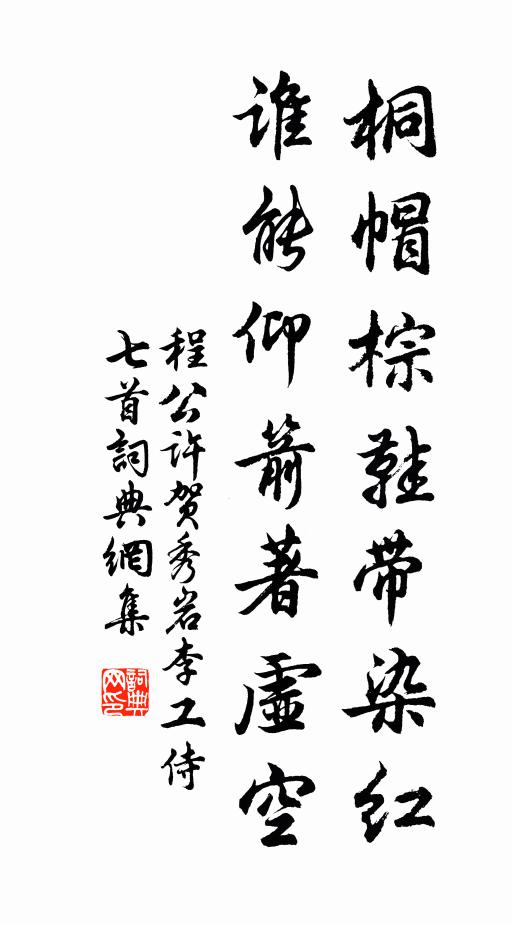 桐帽棕鞋带染红
谁能仰箭著虚空
程公许贺秀岩李工侍
七首詞典網集
詞典
网印